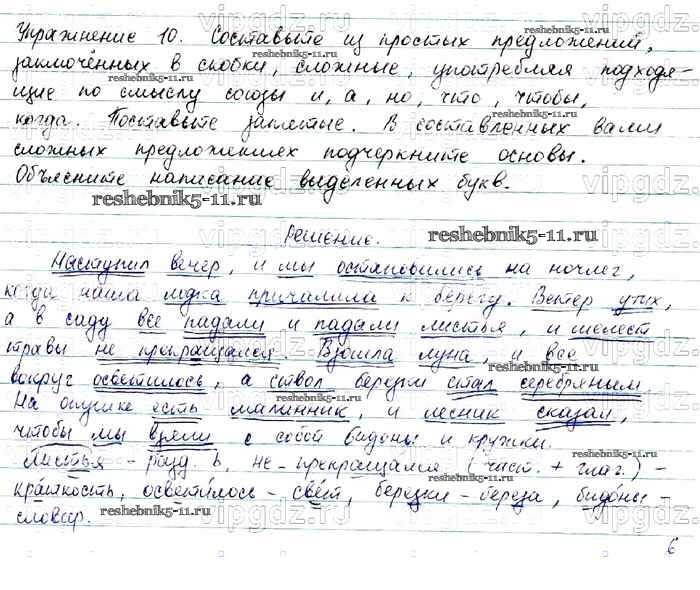 Упражнение 10. Составьте из простых предложений,
заключённых в скобки, сложные, употребляя подходя-
щие по смыслу союзы и, а, но, что, чтобы,
когда. Поставьте запятые. В составленных вами
сложных предложениях подчеркните основы.
Объясните написание выделенных букв.
reshebnik5-11.ru
Решение.
reshebnik5-11.ru
Наступил вечер, и мы остановились на ночлег,
когда наша лодка причалила к берегу. Ветер утих,
а в саду все падали и падали листья, и шелест
травы не прекращался. Взошла луна, и все
вокруг осветилось, а ствол березки стал серебряным
На опушке есть малинник, и лесник сказал,
чтобы мы взяли с собой бидоны и кружки.
Листья - разд. ь, не - прекращался (част. + глаг.) -
краткость, осветилось - свет, березки - береза, бидоны -
словар.
6